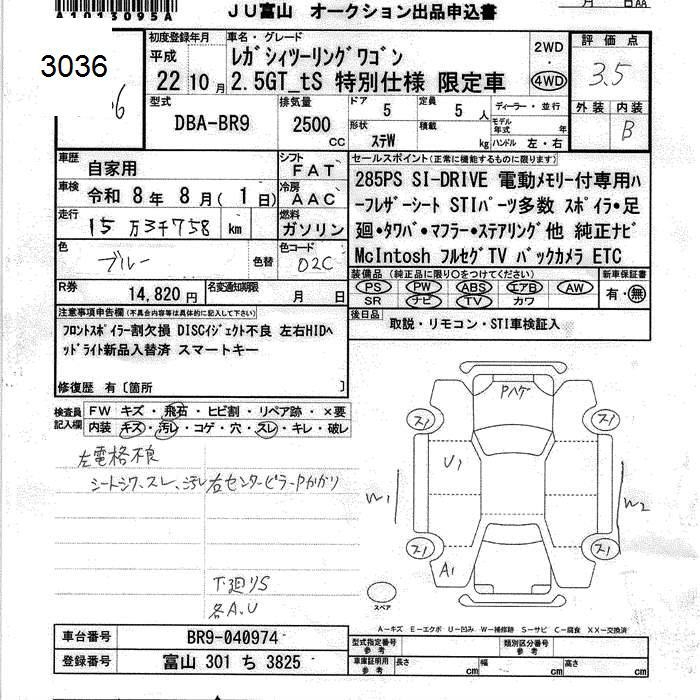 A1013095A
JU富山 オークション出品申込書
月 日 AA
3036
6
初度登録年月
平成
22 10 月
車名・グレード
レガシィツーリングワゴン
2.5GT_tS 特別仕様 限定車
2WD
4WD
評価点
3.5
外装 内装
B
型式
DBA-BR9
排気量
2500 CC
ドア 5
定員 5 人
形状 ステW
積載 kg
ディーラー・並行
モデル年式 年
ハンドル 左・右
車歴 自家用
シフト FAT
車検 令和 8年 8月( 1日)
冷房 AAC
走行 15万3千758 km
燃料 ガソリン
色 ブルー 色替
色コード 02C
R券 14,820円
名変通知期限 月 日
セールスポイント(正常に機能するものに限ります)
285PS SI-DRIVE 電動メモリー付専用ハ
ーフレザーシート STIパーツ多数 スポイラ・足
廻・タワバ・マフラー・ステアリング他 純正ナビ
McIntosh フルセグTV バックカメラ ETC
装備品 (純正品に限り○をつけてください)
PS PW ABS エアB AW
SR ナビ TV カワ
新車保証書
有・無
後日品 取説・リモコン・STI車検証入
注意事項申告欄(不具合内容等は具体的に記入して下さい)
フロントスポイラー割欠損 DISCイジェクト不良 左右HIDヘ
ッドライト新品入替済 スマートキー
修復歴 有〔箇所 〕
検査員記入欄
FW キズ・飛石・ヒビ割・リペア跡・×要
内装 キズ・汚レ・コゲ・穴・スレ・キレ・破レ
左電格不良
シートシワ、スレ、汚レ 右センターピラーPかかり
下廻りS
各A、U
Pハゲ
ス1
ス1
U1
W1
W2
ス1
ス1
A1
スペア
A-キズ E-エクボ U-凹み W-補修跡 S-サビ C-腐食 XX-交換済
車台番号 BR9-040974
登録番号 富山 301 ち 3825
型式指定番号 参考
類別区分番号 参考
車庫証明用 参考
長さ cm
幅 cm
高さ cm